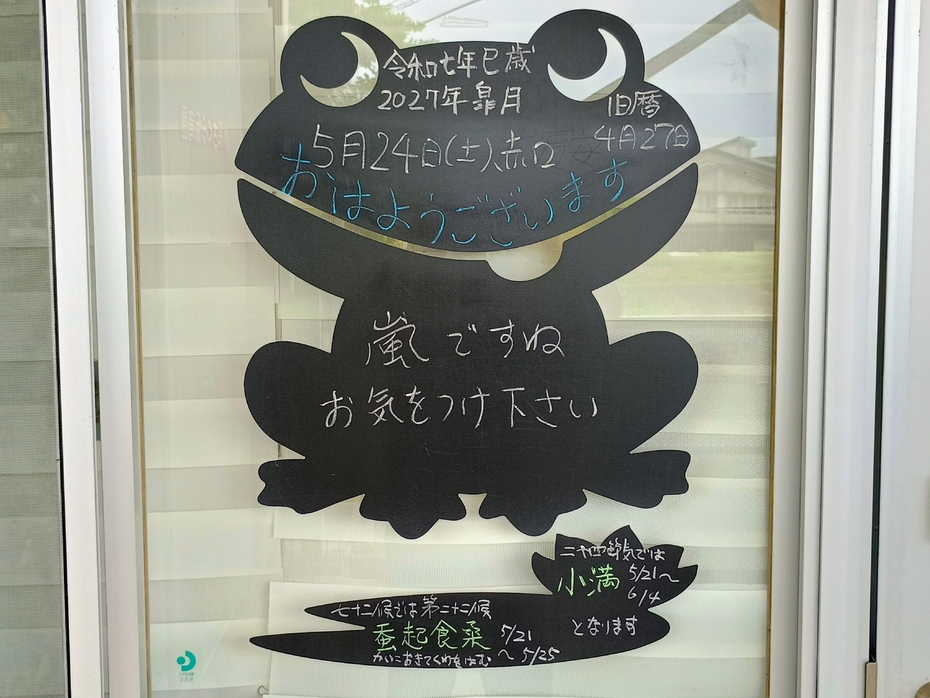 令和七年巳歳
2027年皐月
旧暦
4月27日
5月24日(土)、赤口
おはようございます
嵐ですね
お気をつけ下さい
二十四節気では
小満 5/21～
6/4
となります
七十二候では第二十二候
蚕起食桑 5/21
かいこおきてくわをはむ ～5/25